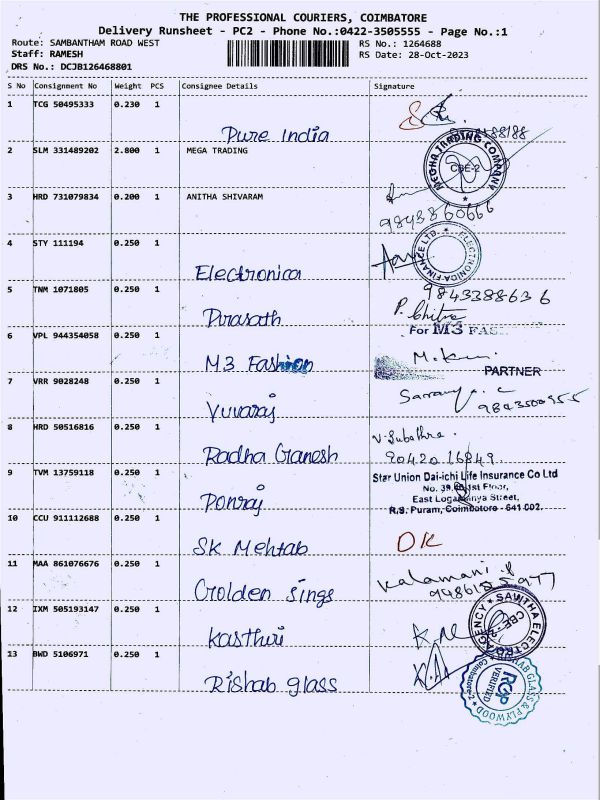 THE PROFESSIONAL COURIERS, COIMBATORE
Delivery Runsheet - PC2 - Phone No.:0422-3505555 - Page No.:1
Route: SAMBANTHAM ROAD WEST
RS No.: 1264688
Staff: RAMESH
RS Date: 28-Oct-2023
DRS No.: DCJB126468801
S No Consignment No Weight PCS Consignee Details Signature
1 TCG 50495333 0.230 1
Pure India
2 SLM 331489202 2.800 1 MEGA TRADING
MEGHA TRADING COMPANY CBE-2
3 HRD 731079834 0.200 1 ANITHA SHIVARAM
9843860666
4 STY 111194 0.250 1
ELECTRONICA FINANCE LTD.
Electronica
9843388636
5 TNM 1071805 0.250 1
P. Chitra
Prasath
For M3 FAS
6 VPL 944354058 0.250 1
M3 Fashion
PARTNER
7 VRR 9028248 0.250 1
Yuvaraj
8 HRD 50516816 0.250 1
V. Subathra.
Radha Ganesh
90420 16849
9 TVM 13759118 0.250 1
Star Union Dai-ichi Life Insurance Co Ltd
1st Floor,
East Logamanya Street,
R.S. Puram, Coimbatore - 641 002.
Ponraj
10 CCU 911112688 0.250 1
OK
SK Mehtab
11 MAA 861076676 0.250 1
Kalamani. P
Golden Sings
12 IXM 505193147 0.250 1
SAVITHA ELECTRO AGENCY CBE-2
Kasthuri
13 BWD 5106971 0.250 1
Rishab glass
RISHAB GLASS & PLYWOOD Coimbatore-2
RGP
VERIFIED